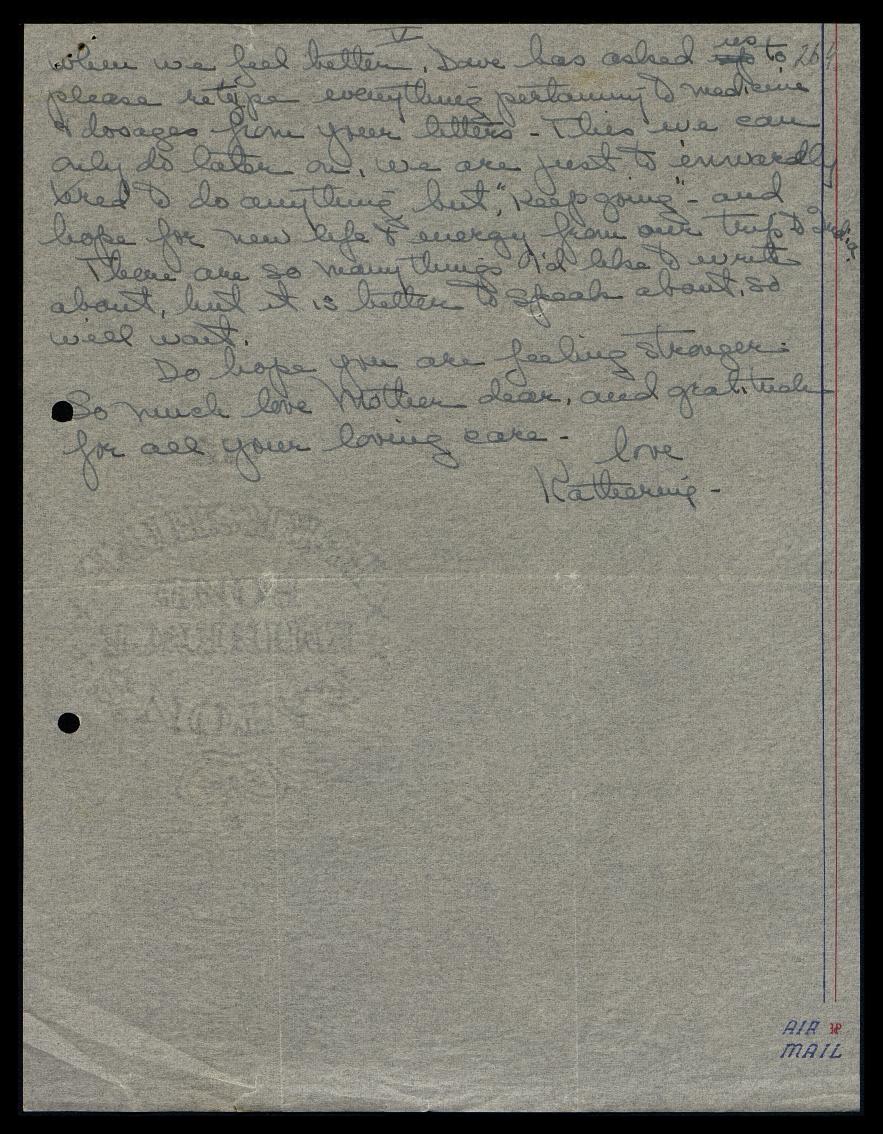 V
when we feel better. Dave has asked us to 264
please retype everything pertaining to medicine
& dosages from your letters - This we can
only do later on, we are just to inwardly
tired to do anything but "keep going" - and
hope for new life & energy from our trip to India.
There are so many things I'd like to write
about, but it is better to speak about, so
will wait.
Do hope you are feeling stronger.
So much love Mother dear, and gratitude
for all your loving care -
love
Katherine -
AIR
MAIL